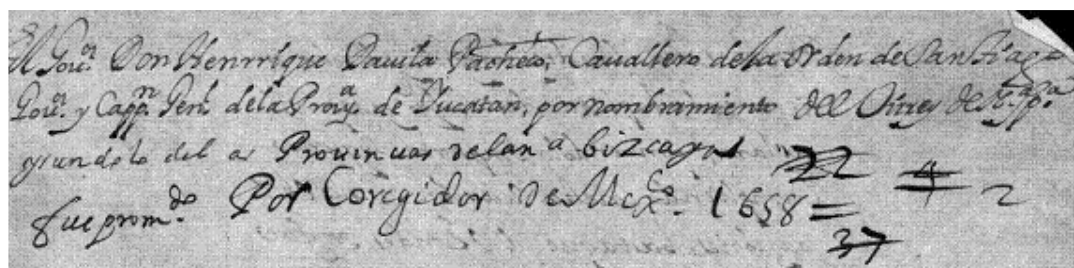 El Gou.or Don Henrrique Dauila Pacheco, Cauallero de la Orden de Santiago
Gou.or y Capp.n Genl de la Prou.a de Yucatan, por nombramiento del Virrey de N.a Sp.a
del as Prouincias bizcaya 22 4 2
fue prom.do Por Coregidor de Mex.co 1658 =
37